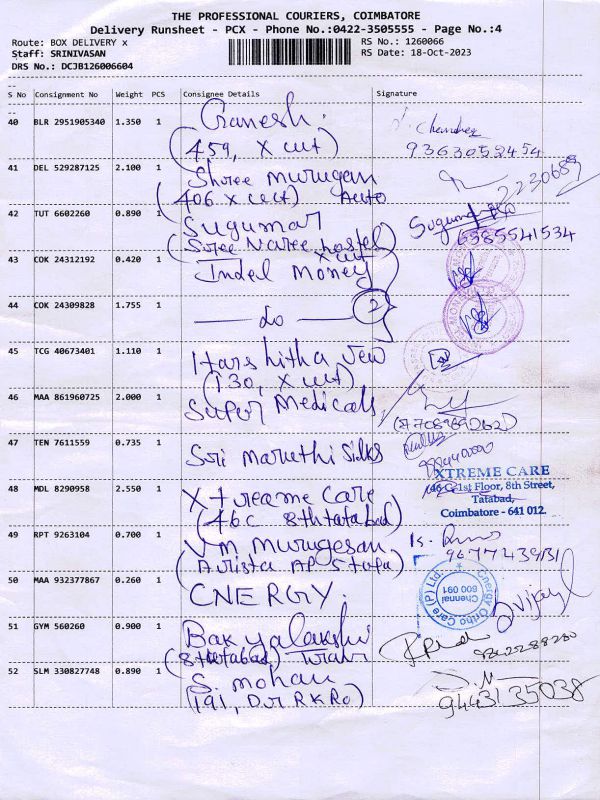 THE PROFESSIONAL COURIERS, COIMBATORE
Delivery Runsheet - PCX - Phone No.:0422-3505555 - Page No.:4
Route: BOX DELIVERY x
RS No.: 1260066
Staff: SRINIVASAN
RS Date: 18-Oct-2023
DRS No.: DCJB126006604
S No Consignment No Weight PCS Consignee Details Signature
40 BLR 2951905340 1.350 1 Ganesh.
(459, X cut)
Chandra
9363052454
41 DEL 529287125 2.100 1 Shree Murugan
(406 X cut) Auto
2230689
42 TUT 6602260 0.890 1 Sugumar
(Sree Naree hostel)
X cut
6385541534
43 COK 24312192 0.420 1 Indel Money
44 COK 24309828 1.755 1 do 2
45 TCG 40673401 1.110 1 Harshitha New
(130, X cut)
46 MAA 861960725 2.000 1 Super Medicals
47 TEN 7611559 0.735 1 Sri Maruthi Silks
48 MDL 8290958 2.550 1 Xtreame Care
(46C 8th tatabad)
XTREME CARE
146-C, 1st Floor, 8th Street,
Tatabad,
Coimbatore - 641 012.
49 RPT 9263104 0.700 1 V.M. Murugesan
9677439131
50 MAA 932377867 0.260 1 CNERGY.
Cnergy Ortho Care (P) Ltd.
Chennai
600 091
Vijay
51 GYM 560260 0.900 1 Bakyalakshi
(8th tatabad)
52 SLM 330827748 0.890 1 S. Mohan
9443135038